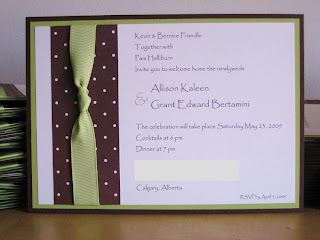 Kevin & Bernice Frandle
Together with
Pam Halliburn
Invite you to welcome home the newlyweds
Allison Kaleen
&
Grant Edward Bertamini
The celebration will take place Saturday May 23, 2009
Cocktails at 6 pm
Dinner at 7 pm
Calgary, Alberta
RSVP by April 1, 2009